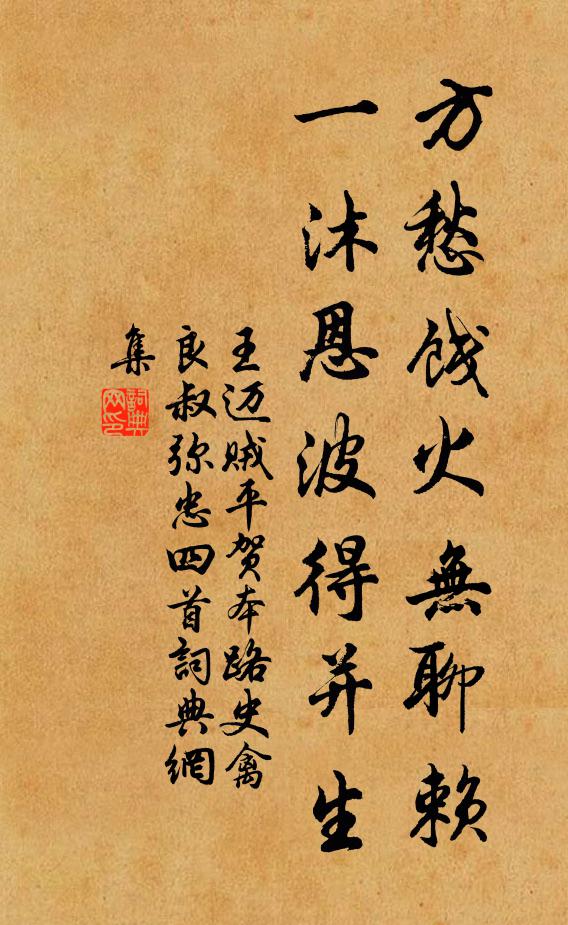 方愁饿火無聊賴
一沐恩波得并生
王迈贼平贺本路史禽
良叔弥忠四首詞典網
集
詞典
网印